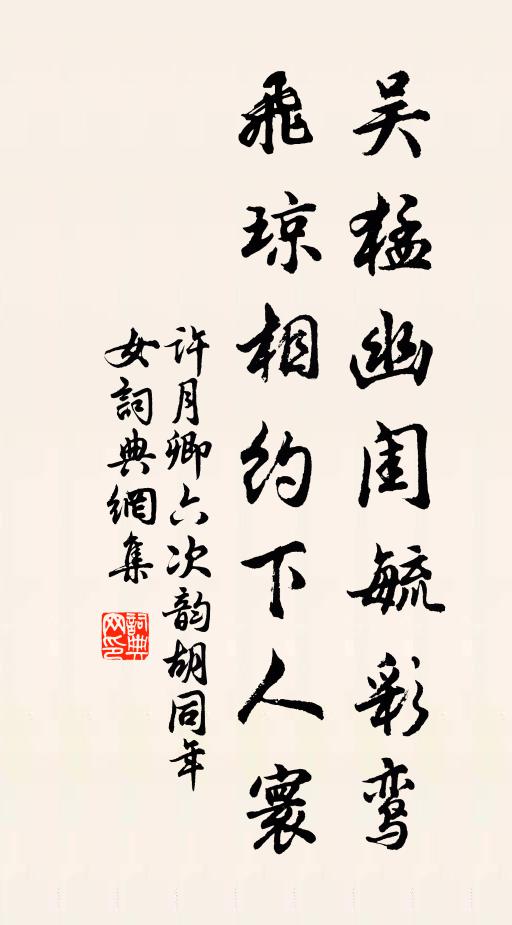 吴猛幽闺毓彩鸾
飛琼相约下人寰
許月卿六次韵胡同年
女詞典網集
詞典网印